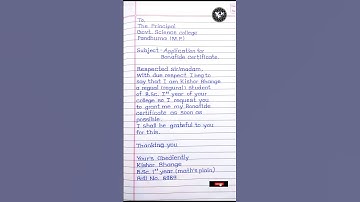 To,
The Principal
Govt. Science college
Pandhurna (M.P)
Subject : Application for
Bonafide Certificate.
Respected sir/madam.
With due respect I beg to
say that I am Kishor Bhange
a regual (regural) student
of B.Sc. 1st year of your
college so I request you
to grant me my Bonafide
certificate as soon as
possible.
I shall be grateful to you
for this.
Thanking you
Your's Obediently
Kishor Bhange
B.Sc 1st year (math's plain)
Roll No.